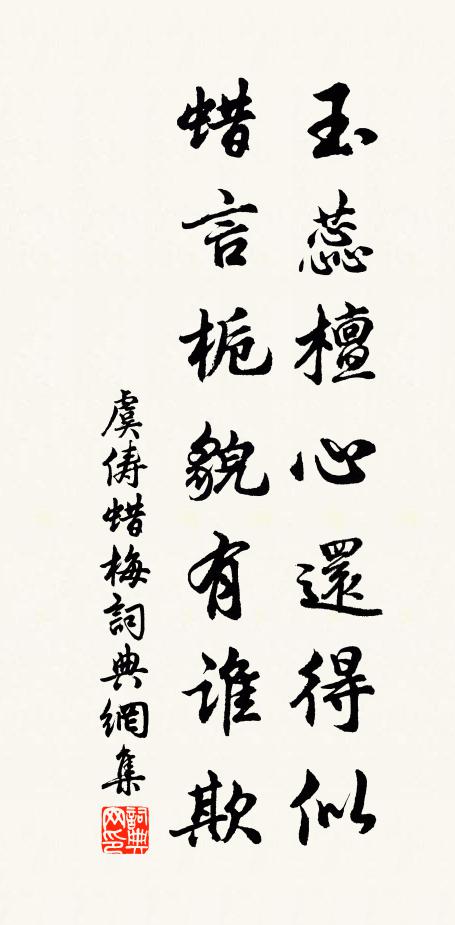 玉蕊檀心還得似
蜡言栀貌有誰欺
虞儔蜡梅詞典網集
詞典网印